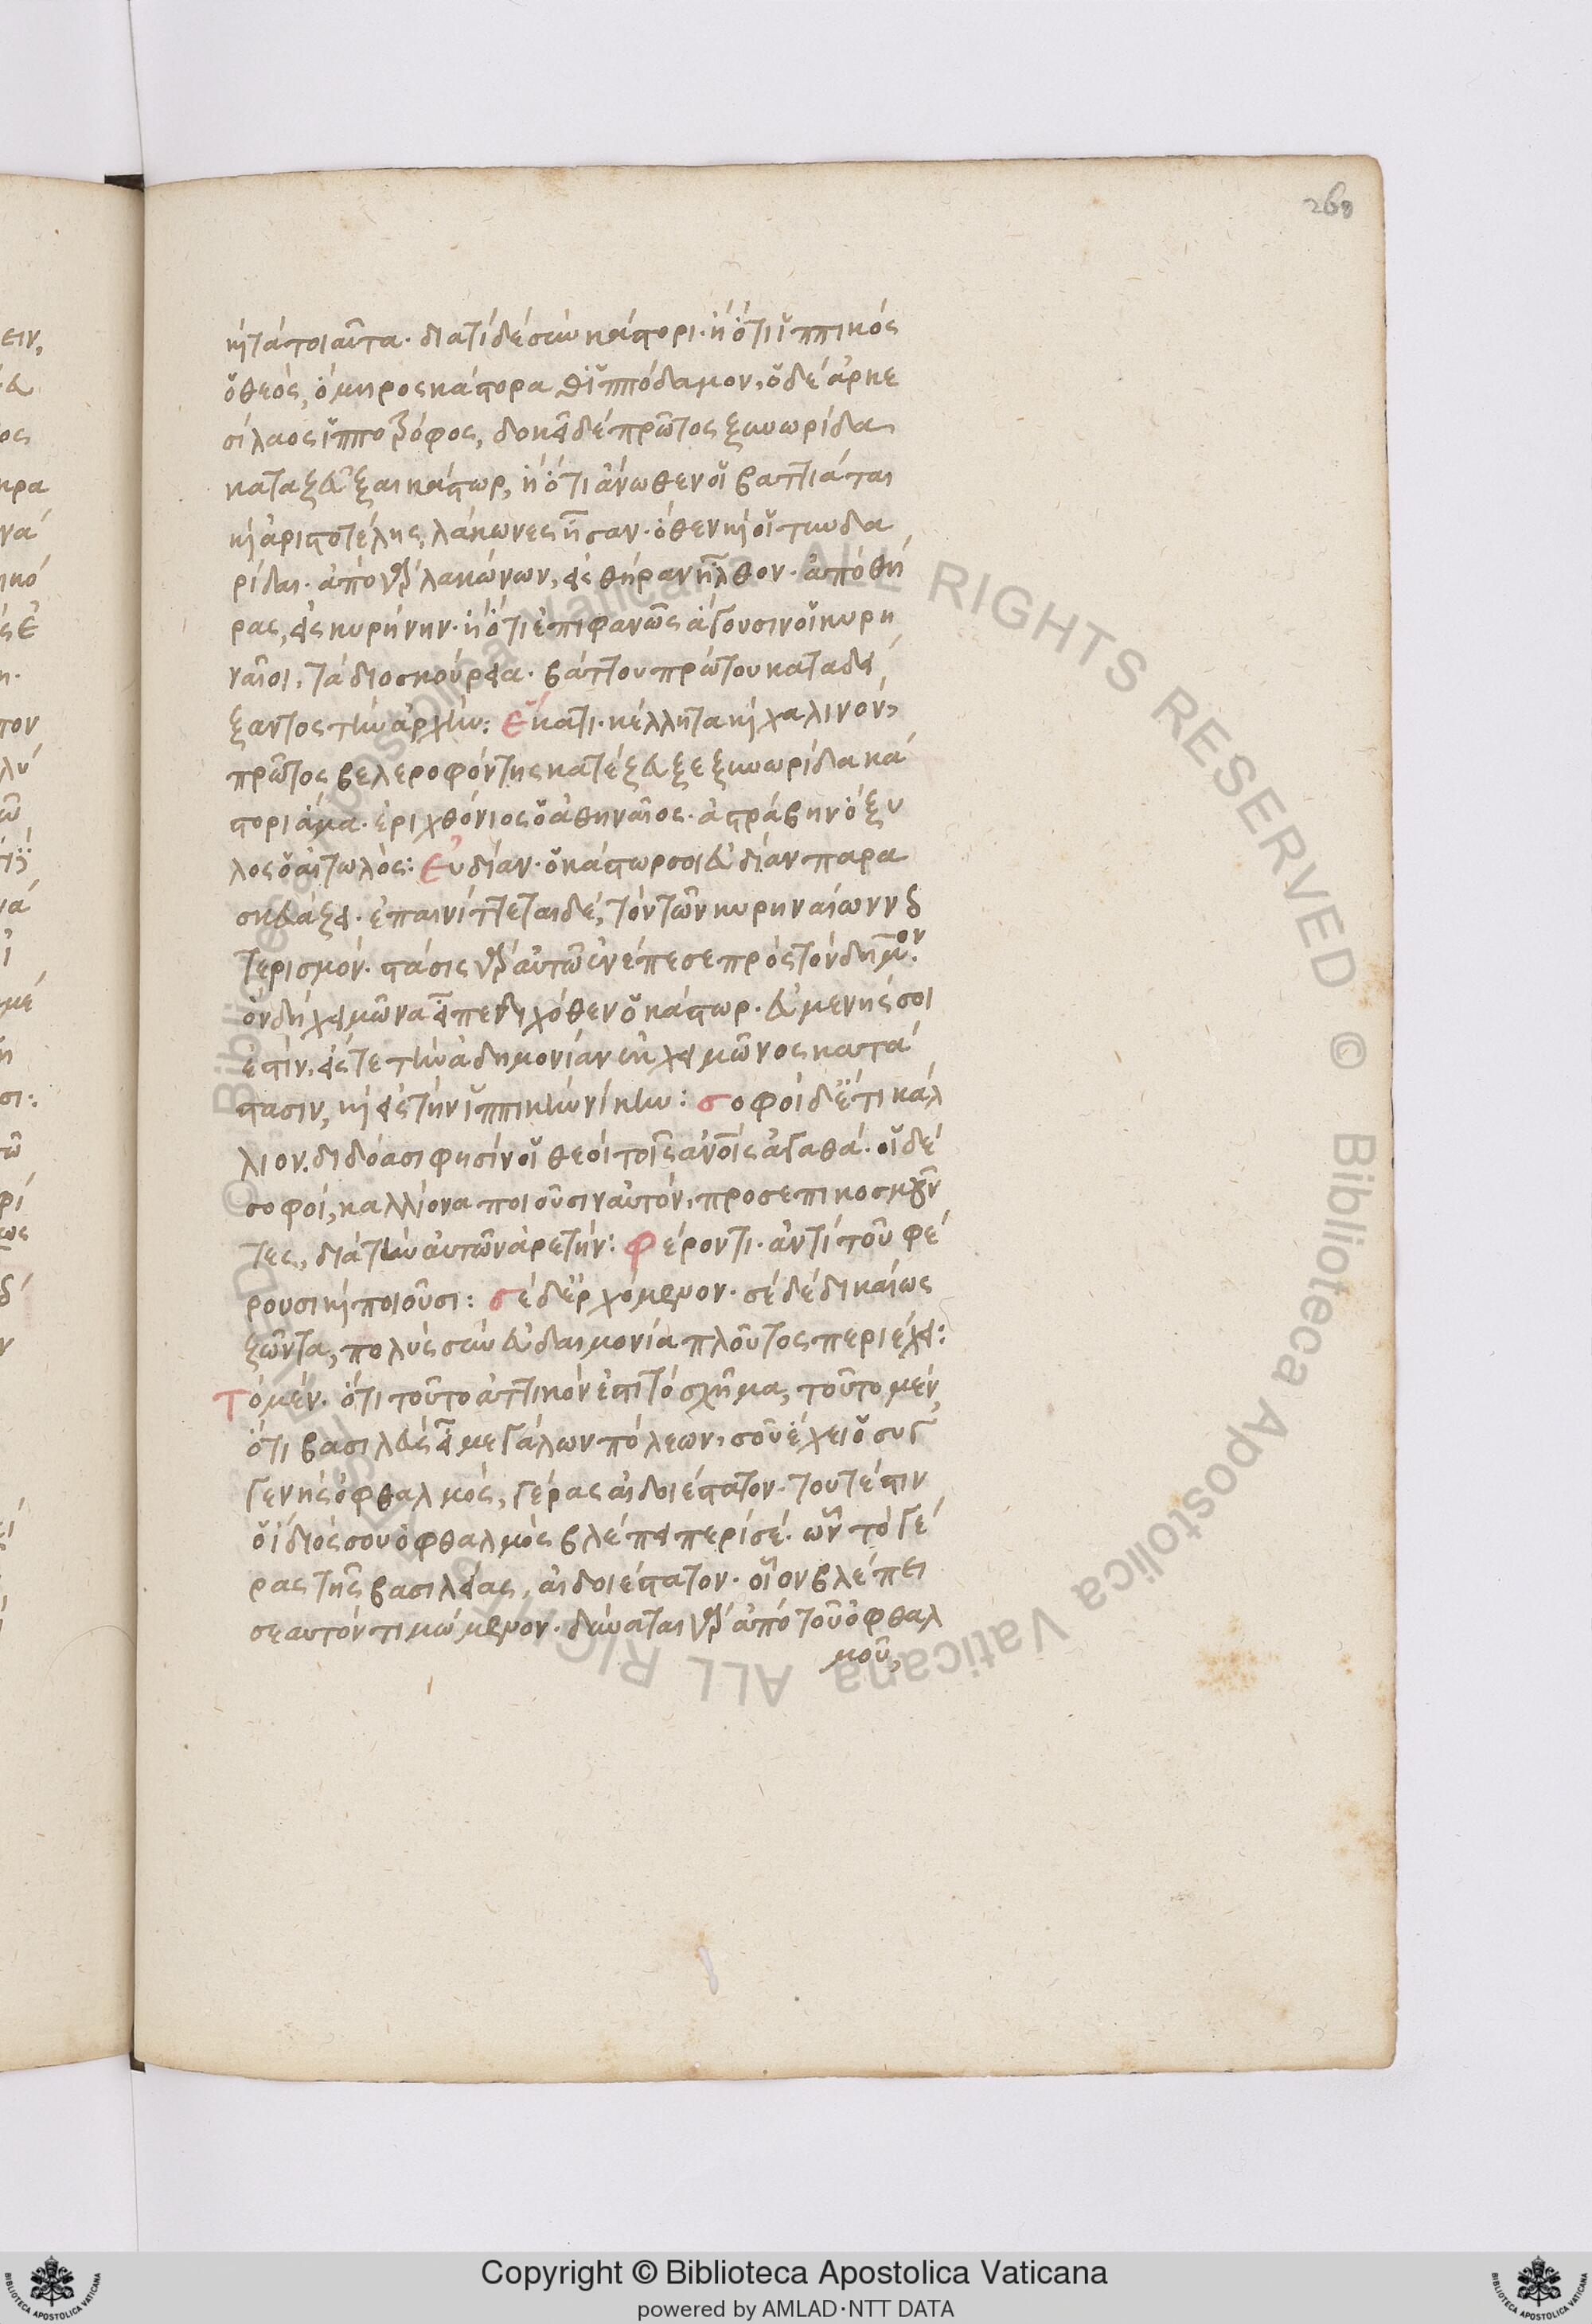 268
κὴ τὰ τοιαῦτα. διατί δέ σὺν κάστορι. ἢ ὅτι ἱππικός
ὁ θεός, ὅμηρος κάστορα θ' ἱππόδαμον, ὁ δὲ ἀρκε
σίλαος ἱπποτρόφος, δοκεῖ δὲ πρῶτος ξυνωρίδα
καταζεῦξαι κάστωρ, ἢ ὅτι ἄνωθεν οἱ βαττιάται
κὴ ἀριστοτέλης, λάκωνες ἦσαν. ὅθεν κὴ οἱ τυνδα
ρίδαι. ἀπὸ γὰρ λακώνων, εἰς θήραν ἦλθον. ἀπὸ θή
ρας, εἰς κυρήνην. ἢ ὅτι ἐπιφανῶς ἄγουσιν οἱ κυρη
ναῖοι, τὰ διοσκούρεια. βάττου πρώτου καταδεί
ξαντος τὴν ἀρχήν: Ἕκατι. κέλητα κὴ χαλινόν,
πρῶτος βελεροφόντης κατέζευξε ξυνωρίδα κά
στορι ἅμα. ἐριχθόνιος ὁ ἀθηναῖος. ἀστράβην ὄξυ
λος ὁ αἰτωλός: Εὐδίαν. ὁ κάστωρ σοι εὐδίαν παρα
σκευάζει. ἐπαινίττεται δέ, τὸν τῶν κυρηναίων νεω
τερισμόν. στάσις γὰρ αὐτῶ ἐνέπεσε πρὸς τὸν δῆμον.
ὃν δὴ χειμῶνα εἶπεν διχόθεν ὁ κάστωρ. εὐμενής σοι
ἐστίν, εἴς τε τὴν ἀδημονίαν ἐκ χειμῶνος κατά
στασιν, κὴ εἰς τὴν ἱππικὴν νίκην: σοφοὶ δέ τι κάλ
λιον. διδόασι φησίν οἱ θεοὶ τοῖς ἀνοῖς ἀγαθά. οἱ δὲ
σοφοί, καλλίονα ποιοῦσιν αὐτόν, προσεπικοσμοῦν
τες, διὰ τὴν αὐτῶν ἀρετήν: Φέροντι. ἀντὶ τοῦ φέ
ρουσι κὴ ποιοῦσι: σὲ δ' ἐρχόμενον. σὲ δὲ δικαίως
ζῶντα, πολὺς σὺν εὐδαιμονία πλοῦτος περιέχει:
Τὸ μέν. ὅτι τοῦτο ἀττικόν ἐστι τὸ σχῆμα, τοῦτο μέν,
ὅτι βασιλεὺς εἶ μεγάλων πόλεων, σοῦ ἔχει ὁ συγ
γενὴς ὀφθαλμός, γέρας αἰδοιέστατον. τουτέστιν
ὁ ἴδιός σου ὀφθαλμὸς βλέπει περὶ σέ. ὢν τὸ γέ
ρας τῆς βασιλείας, αἰδοιέστατον. οἷον βλέπει
σεαυτόν τιμώμενον. δύναται γὰρ ἀπὸ τοῦ ὀφθαλ
μοῦ,
Copyright © Biblioteca Apostolica Vaticana
powered by AMLAD·NTT DATA